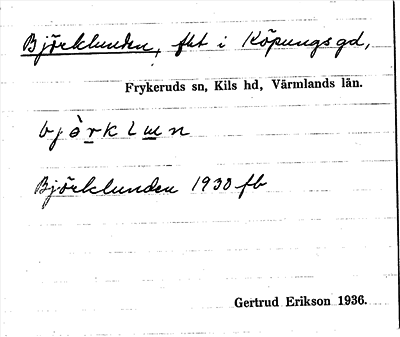 Björklunden, fht i Köpungsgd,
Frykeruds sn, Kils hd, Värmlands län.
bjòrklun
Björklunden 1930 fb
Gertrud Erikson 1936.